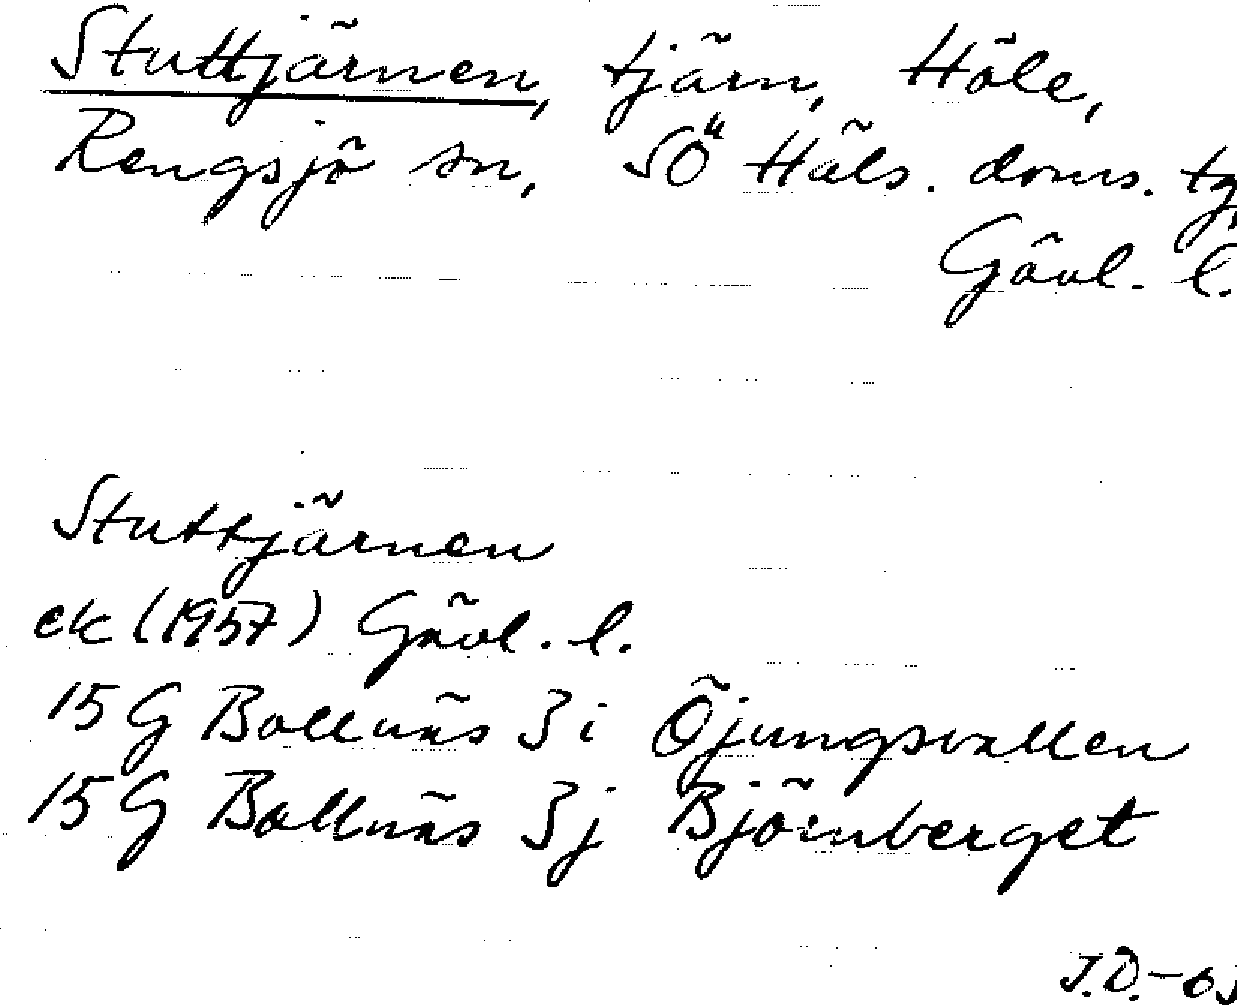 Stuttjärnen, tjärn, Höle,
Rengsjö sn, SÖ Häls. doms. tg,
Gävl. l.
Stuttjärnen
ek (1957) Gävl. l.
15 G Bollnäs 3 i Öjungsvallen
15 G Bollnäs 3 j Björnberget
J.D.